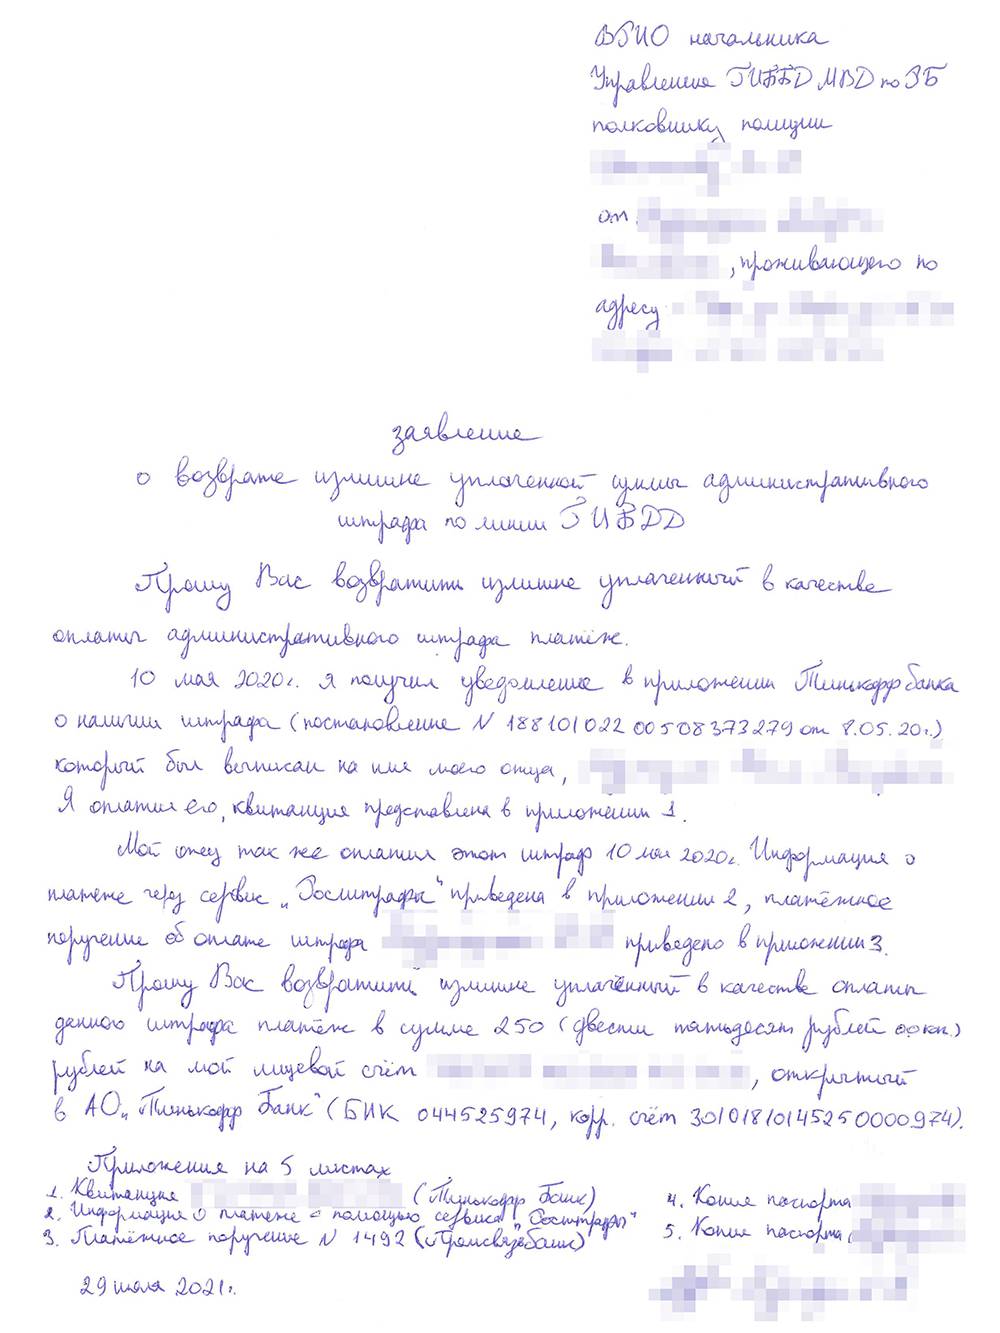 ВРИО начальника
Управления ГИБДД МВД по РБ
полковнику полиции
от
, проживающего по
адресу
заявление
о возврате излишне уплаченной суммы административного
штрафа по линии ГИБДД
Прошу Вас возвратить излишне уплаченный в качестве
оплаты административного штрафа платёж.
10 мая 2020г. я получил уведомление в приложении Тинькофф банка
о наличии штрафа (постановление N 18810102200508373279 от 8.05.20г.)
который был выписан на имя моего отца,
Я оплатил его, квитанция представлена в приложении 1.
Мой отец так же оплатил этот штраф 10 мая 2020г. Информация о
платеже через сервис „Росштрафы" приведена в приложении 2, платёжное
поручение об оплате штрафа приведено в приложении 3.
Прошу Вас возвратить излишне уплаченный в качестве оплаты
данного штрафа платёж в сумме 250 (двести пятьдесят рублей 00 коп.)
рублей на мой лицевой счёт , открытый
в АО „Тинькофф Банк" (БИК 044525974, корр. счёт 30101810145250000974).
Приложения на 5 листах
1. Квитанция (Тинькофф Банк)
2. Информация о платеже с помощью сервиса "Росштрафы"
3. Платёжное поручение N 1492 (Промсвязьбанк)
4. Копия паспорта
5. Копия паспорта
29 июля 2021г.